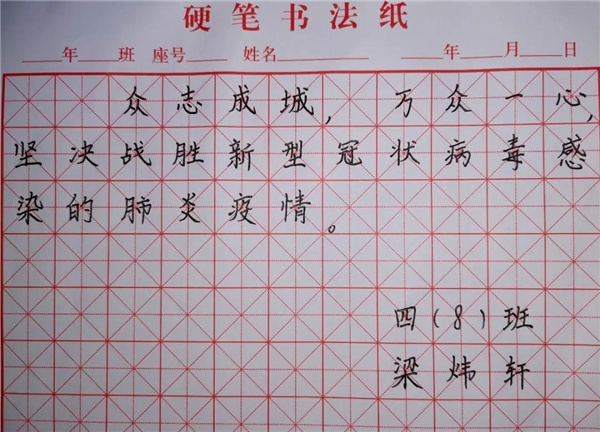 硬笔书法纸
年 班 座号 姓名 年 月 日
众志成城,万众一心,
坚决战胜新型冠状病毒感
染的肺炎疫情。
四(8)班
梁炜轩